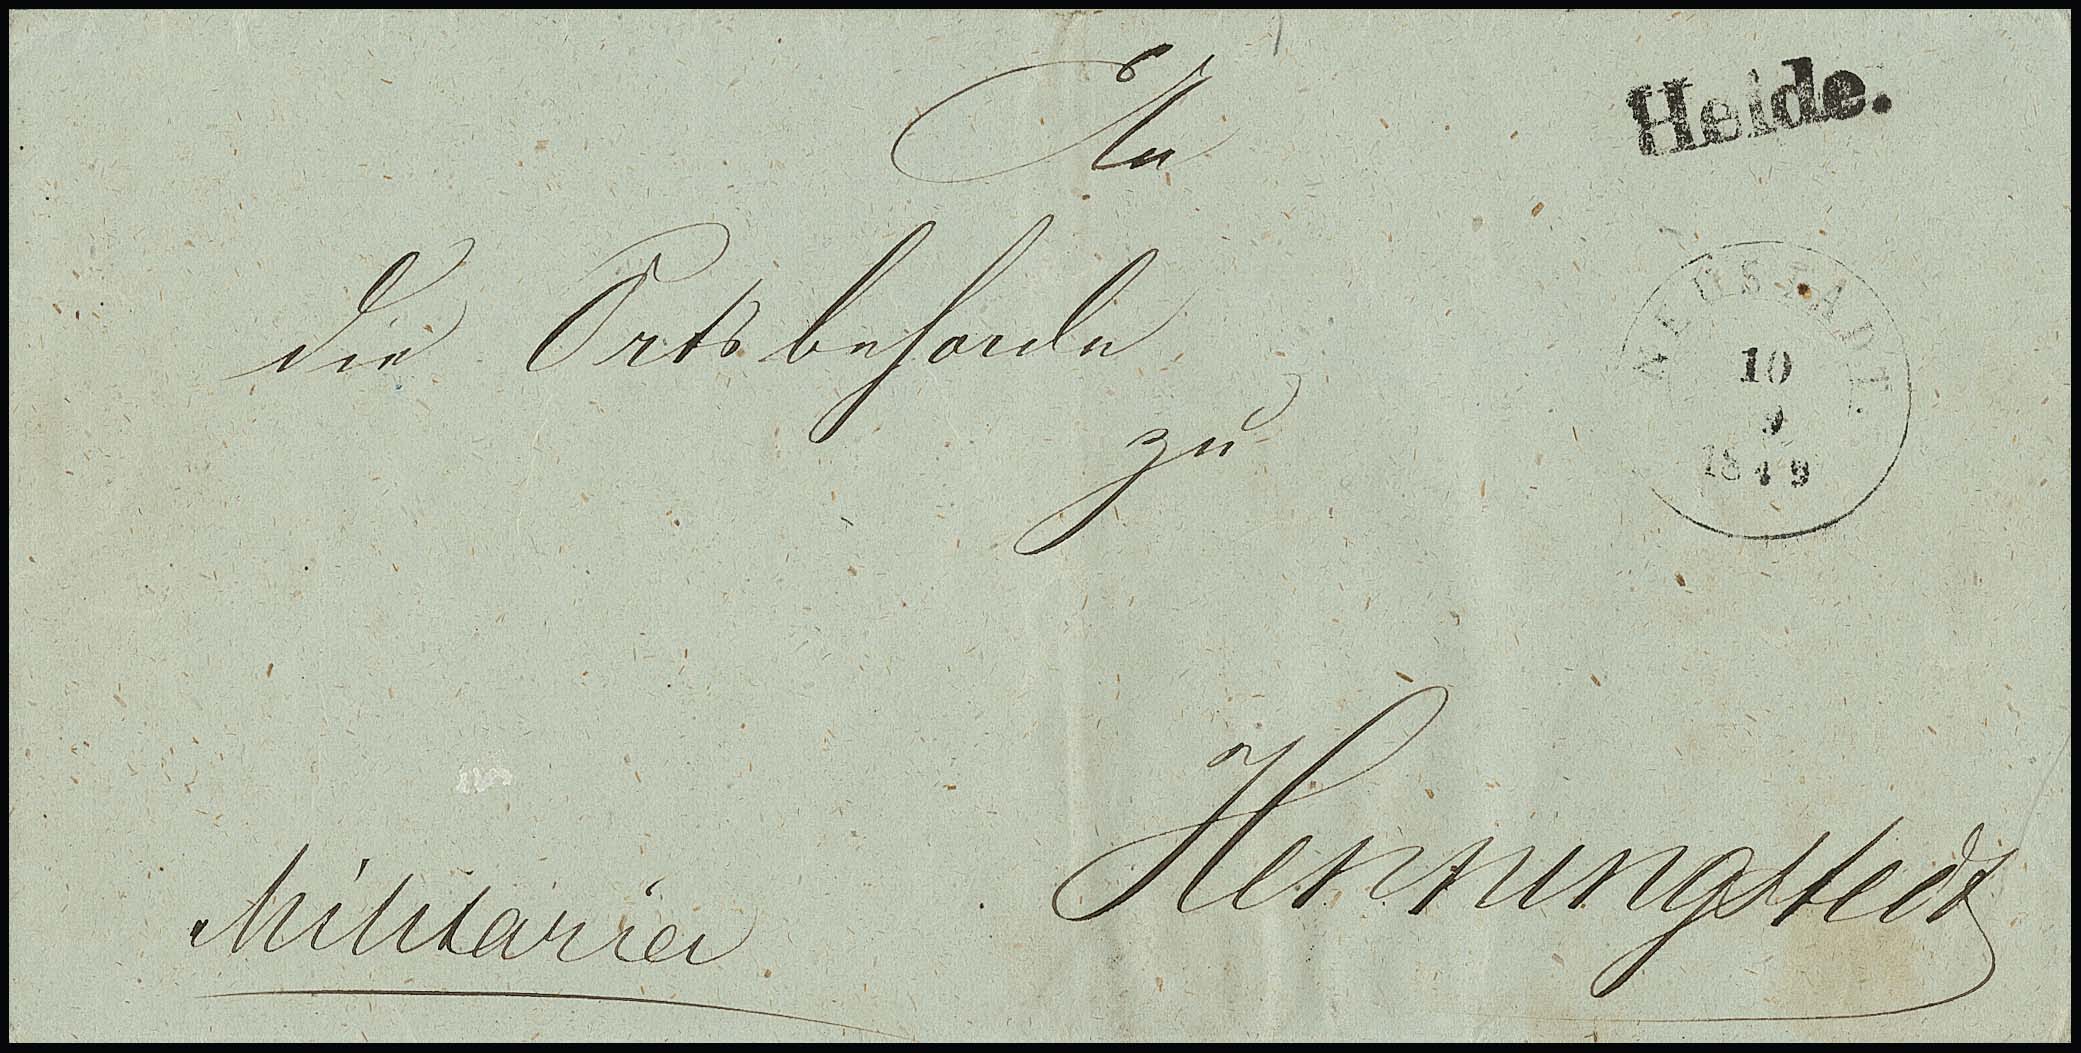 An
Heide.
die Ortsbehörde
NEUSTADT.
10
9
1849
zu
Hennungstedt
Militaria